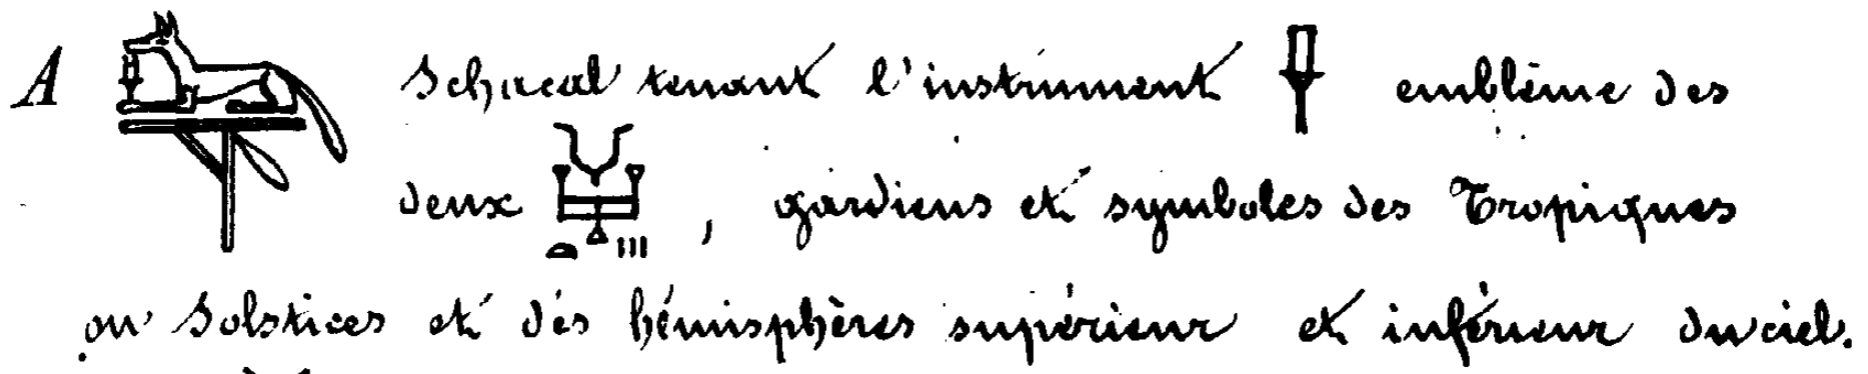 A Schacal tenant l'instrument emblème des
deux , gardiens et symboles des Tropiques
ou Solstices et dés hémisphères supérieur et inférieur du ciel.